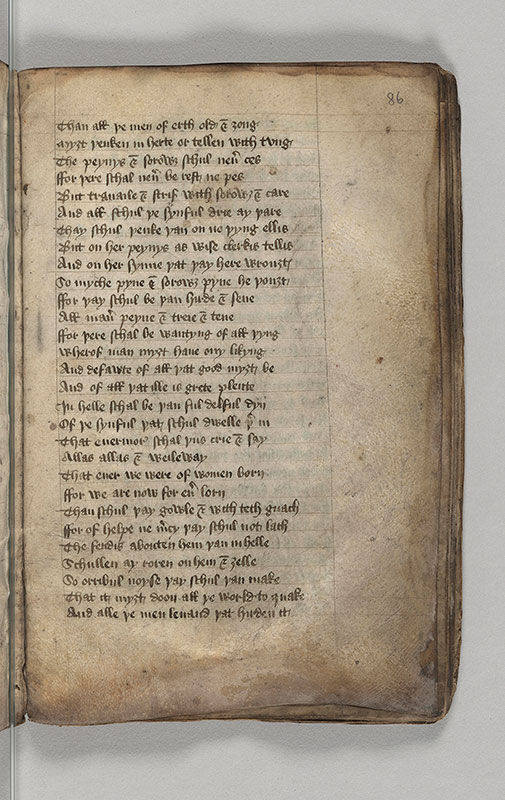 86
Than all þe men of erth old & ȝong
Myȝt þenken in herte or tellen with tung
The peynys & sorowȝ schul neu̅ ces
ffor þere schal neu̅ be rest ne pes
But trauaile & strif with sorow & care
And all schul þe synful drie ay þare
Thay schul þenke þan on no þyng ellis
But on her peynys as wise clerkis tellis
And on her synne þat þay here wrouȝt
So myche pyne & sorowȝ þyne he þouȝt
ffor þay schul be þan hirde & sene
All man̅ peyne & treie & tene
ffor þere schal be wantyng of all þyng
Wherof man myȝt haue ony likyng
And defawte of all þat good myȝt be
And of all þat ille is grete plente
In helle schal be þan ful delful dyn
Of þe synful þat schul dwelle þ̅ in
That euermor schal þus crie & say
Allas allas & weileway
That euer we were of women born
ffor we are now for eu̅ lorn
Than schul þay gowle & with teth gnach
ffor of helpe ne m̅cy þay schul not lach
The fendis abouten hem þan in helle
Schullen ay roren on hem & ȝelle
So orribul noyse þay schul þan make
That it myȝt doon all þe world to quake
And alle þe men leuand þat hirden it